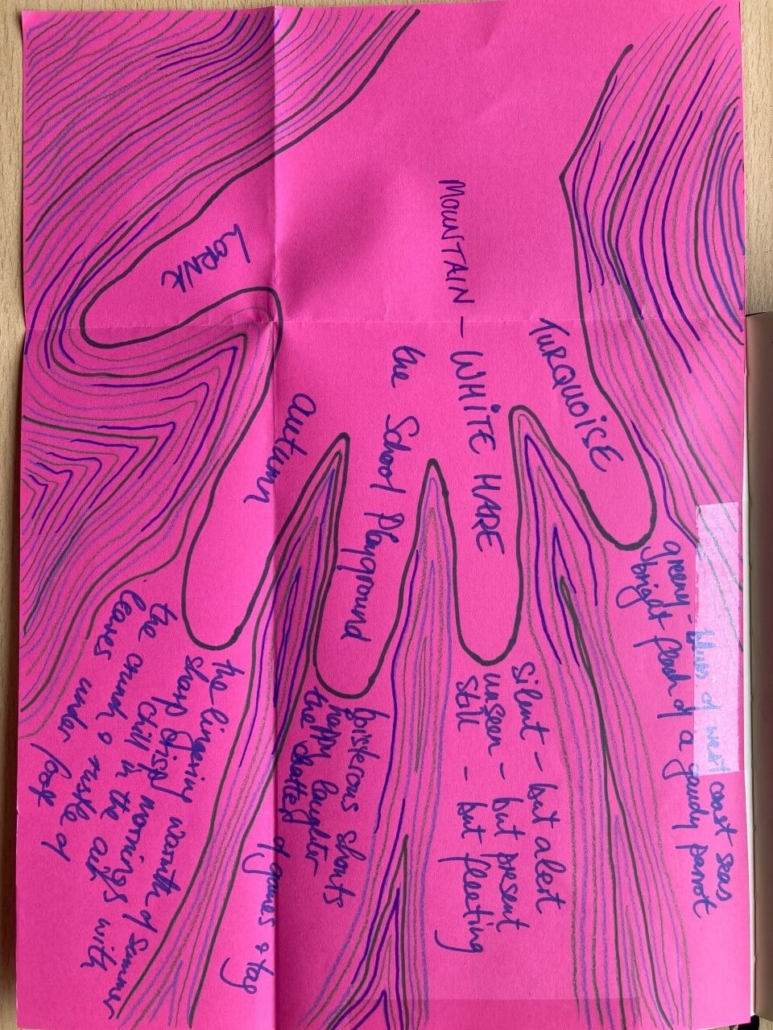 TURQUOISE
greeny-blues of west coast seas
bright flash of a gaudy parrot
MOUNTAIN - WHITE HARE
Silent - but alert
unseen - but present
still - but fleeting
the School Playground
boisterous shouts
happy laughter
the chatter of games & tag
autumn
the lingering warmth of Summer
sharp crisp mornings
chill in the air with
the crunch & rustle of
leaves under foot
LORNA